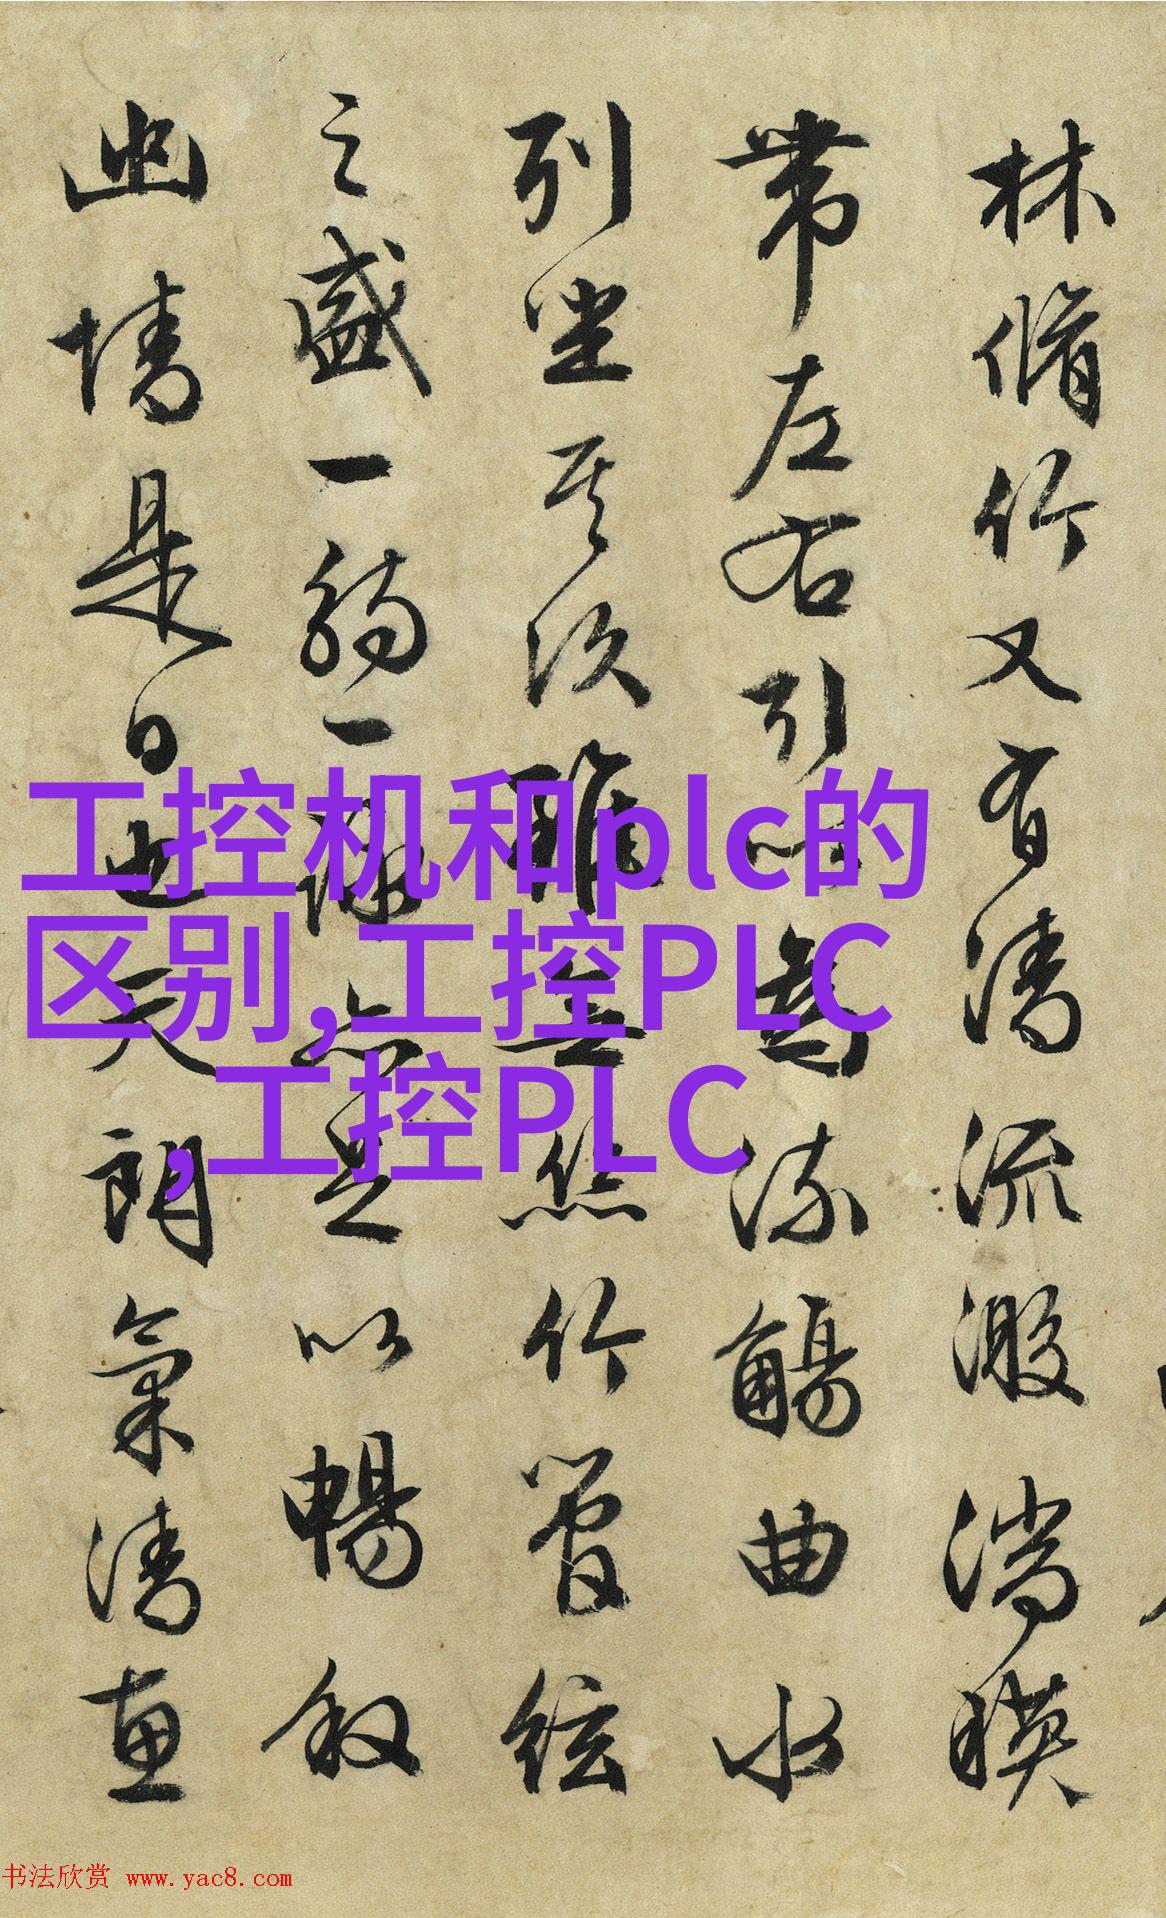 林脩竹又有清流激湍暎
帶左右引以為流觴曲水
列坐其次雖無絲竹管弦
之盛一觴一詠亦足以暢叙
幽情是日也天朗氣清惠
工控机和plc的
区别,工控PLC
,工控PLC
书法欣赏 www.yac8.com